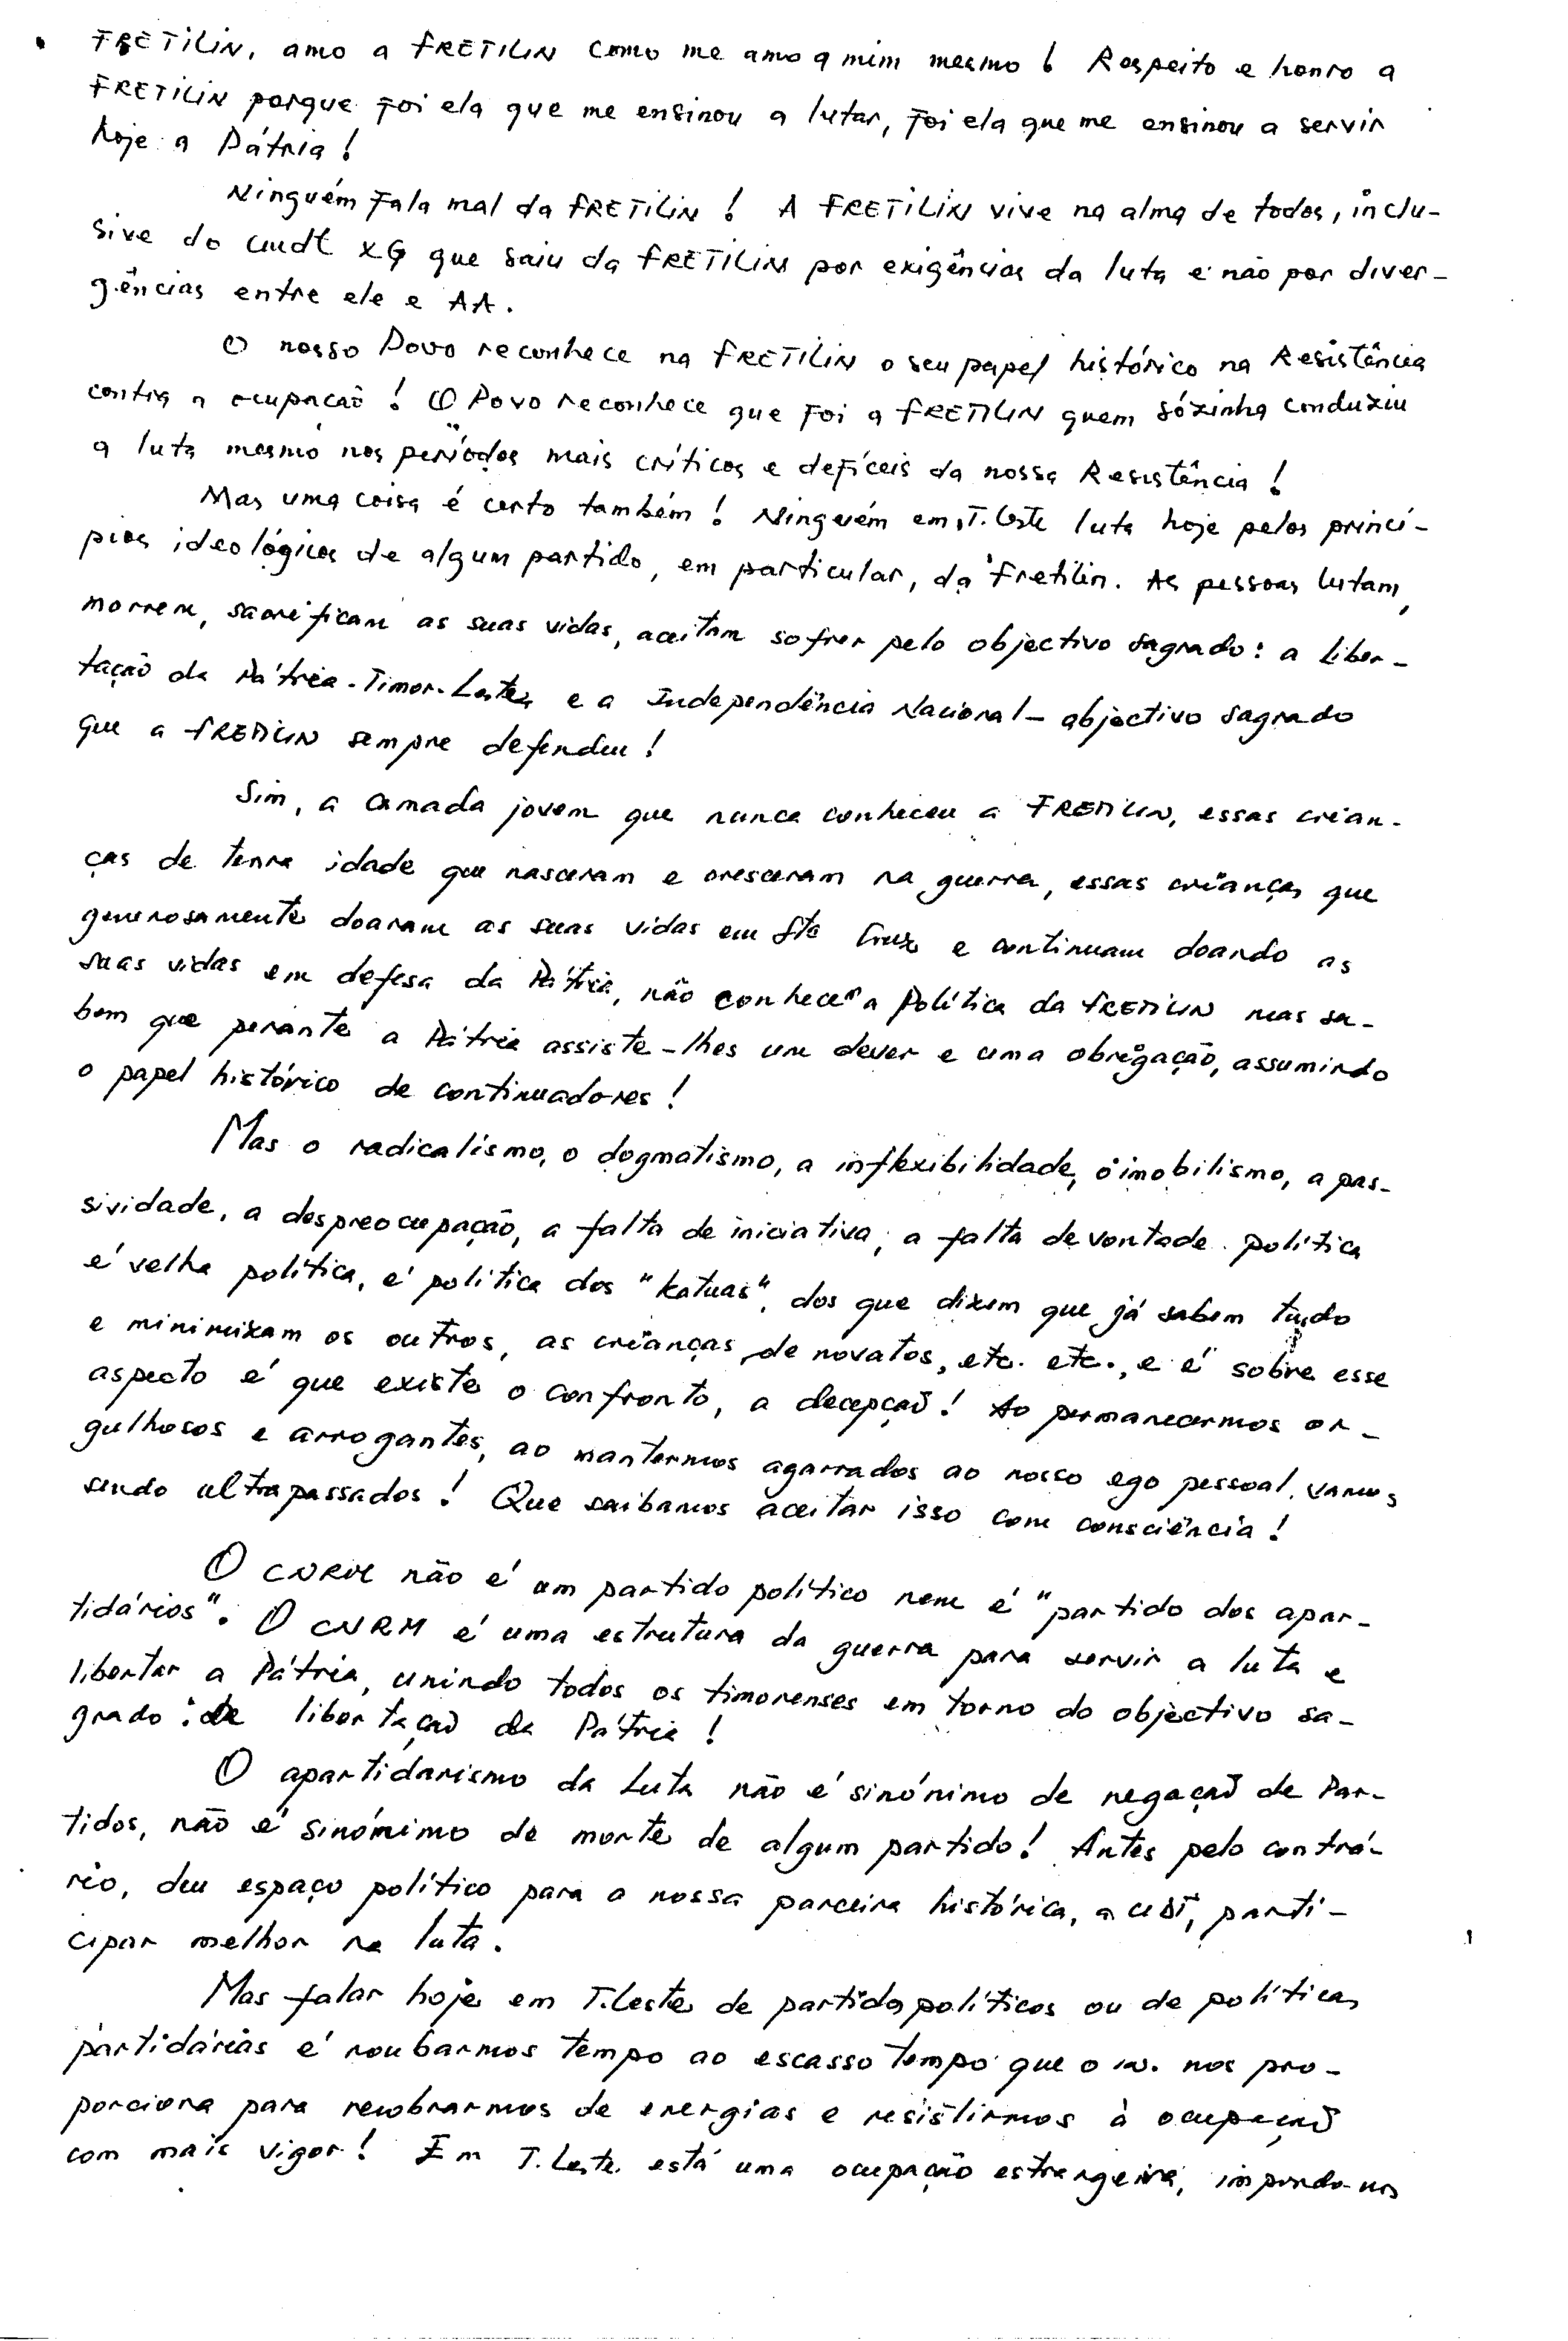 FRETILIN, amo a FRETILIN como me amo a mim mesmo! Respeito e honro a
FRETILIN porque foi ela que me ensinou a lutar, foi ela que me ensinou a servir
hoje a Pátria!
Ninguém fala mal da FRETILIN! A FRETILIN vive na alma de todos, inclu-
sive do Cmdt XG que saiu da FRETILIN por exigências da luta e não por diver-
gências entre ele e AA.
O nosso Povo reconhece na FRETILIN o seu papel histórico na Resistência
contra a ocupação! O Povo reconhece que foi a FRETILIN quem sózinha conduziu
a luta mesmo nos períodos mais críticos e defíceis da nossa Resistência!
Mas uma coisa é certo também! Ninguém em T. Leste luta hoje pelos princí-
pios ideológicos de algum partido, em particular, da Fretilin. As pessoas lutam,
morrem, sacrificam as suas vidas, aceitam sofrer pelo objectivo sagrado: a liber-
tação da Pátria - Timor-Leste, e a Independência Nacional - objectivo sagrado
que a FRETILIN sempre defendeu!
Sim, a camada jovem que nunca conheceu a FRETILIN, essas crian-
ças de tenra idade que nasceram e cresceram na guerra, essas crianças que
generosamente doaram as suas vidas em Sta Cruz e continuam doando as
suas vidas em defesa da Pátria, não conhecem a Política da FRETILIN mas sa-
bem que perante a Pátria assiste-lhes um dever e uma obrigação, assumindo
o papel histórico de continuadores!
Mas o radicalismo, o dogmatismo, a inflexibilidade, o imobilismo, a pas-
sividade, a despreocupação, a falta de iniciativa, a falta de vontade política
é velha política, é política dos "katuas", dos que dizem que já sabem tudo
e minimizam os outros, as crianças, de novatos, etc. etc., e é sobre esse
aspecto é que existe o confronto, a decepção! Ao permanecermos or-
gulhosos e arrogantes, ao mantermos agarrados ao nosso ego pessoal, vamos
sendo ultrapassados! Que saibamos aceitar isso com consciência!
O CNRM não é um partido político nem é "partido dos apar-
tidários". O CNRM é uma estrutura da guerra para servir a luta e
libertar a Pátria, unindo todos os timorenses em torno do objectivo sa-
grado: de libertação da Pátria!
O apartidarismo da Luta não é sinónimo de negação de Par-
tidos, não é sinónimo de morte de algum partido! Antes pelo contrá-
rio, deu espaço político para a nossa parceira histórica, a UDT, parti-
cipar melhor na luta.
Mas falar hoje em T. Leste de partidos políticos ou de políticas
partidárias é roubarmos tempo ao escasso tempo que o in. nos pro-
porciona para recobrarmos de energias e resistirmos à ocupação
com mais vigor! Em T. Leste está uma ocupação estrangeira, impondo-nos